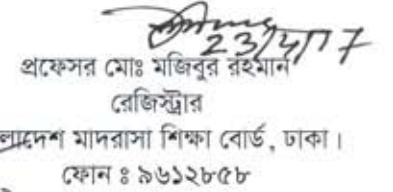 23/4/17
প্রফেসর মোঃ মজিবুর রহমান
রেজিস্ট্রার
লাদেশ মাদরাসা শিক্ষা বোর্ড, ঢাকা।
ফোন ঃ ৯৬১২৮৫৮